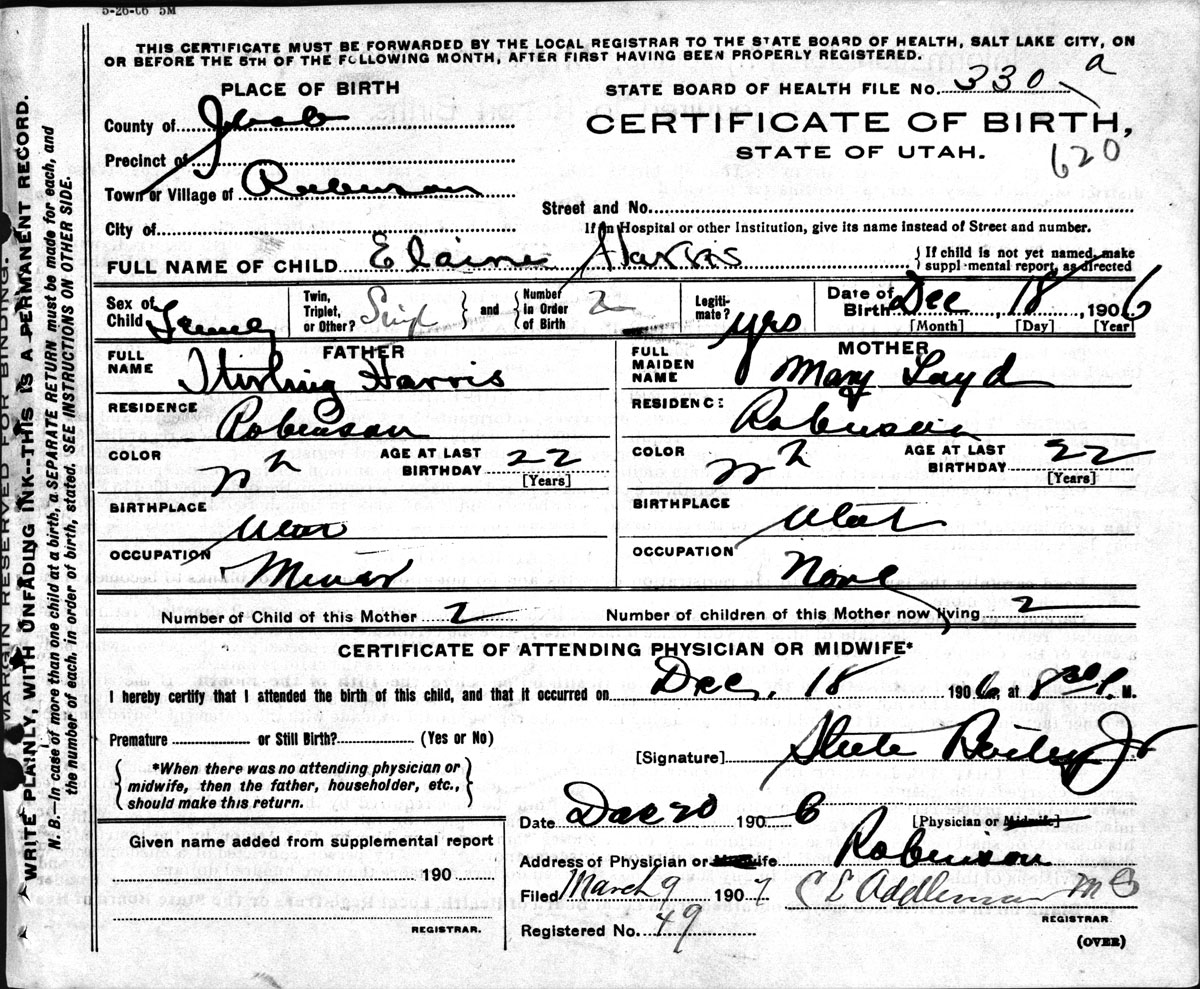 5-26-06 5M
THIS CERTIFICATE MUST BE FORWARDED BY THE LOCAL REGISTRAR TO THE STATE BOARD OF HEALTH, SALT LAKE CITY, ON
OR BEFORE THE 5TH OF THE FOLLOWING MONTH, AFTER FIRST HAVING BEEN PROPERLY REGISTERED.
PLACE OF BIRTH
STATE BOARD OF HEALTH FILE No. 330-a
County of Juab
CERTIFICATE OF BIRTH,
STATE OF UTAH.
620
Precinct of
Town or Village of Robinson
Street and No.
City of
If in Hospital or other Institution, give its name instead of Street and number.
FULL NAME OF CHILD Elaine Harris
If child is not yet named, make
supplemental report, as directed
Sex of Child Female
Twin, Triplet, or Other? Singl
and Number in Order of Birth 2
Legitimate? yes
Date of Birth Dec 18, 1906
[Month] [Day] [Year]
FATHER
FULL NAME Sterling Harris
RESIDENCE Robinson
COLOR Wh
AGE AT LAST BIRTHDAY 22
[Years]
BIRTHPLACE Utah
OCCUPATION Miner
MOTHER
FULL MAIDEN NAME Mary Loyd
RESIDENCE Robinson
COLOR Wh
AGE AT LAST BIRTHDAY 22
[Years]
BIRTHPLACE Utah
OCCUPATION None
Number of Child of this Mother 2
Number of children of this Mother now living 2
CERTIFICATE OF ATTENDING PHYSICIAN OR MIDWIFE*
I hereby certify that I attended the birth of this child, and that it occurred on Dec, 18 1906, at 8 30 P. M.
Premature or Still Birth? (Yes or No)
[Signature] Steele Bailey Jr
*When there was no attending physician or
midwife, then the father, householder, etc.,
should make this return.
Date Dec 20 190 6 [Physician or Midwife]
Given name added from supplemental report
190
REGISTRAR.
Address of Physician or Midwife Robinson
Filed March 9 1907 C E Addleman M D
REGISTRAR.
Registered No. 49
(OVER)
MARGIN RESERVED FOR BINDING.
WRITE PLAINLY, WITH UNFADING INK--THIS IS A PERMANENT RECORD.
N. B.--In case of more than one child at a birth, a SEPARATE RETURN must be made for each, and
the number of each, in order of birth, stated. SEE INSTRUCTIONS ON OTHER SIDE.